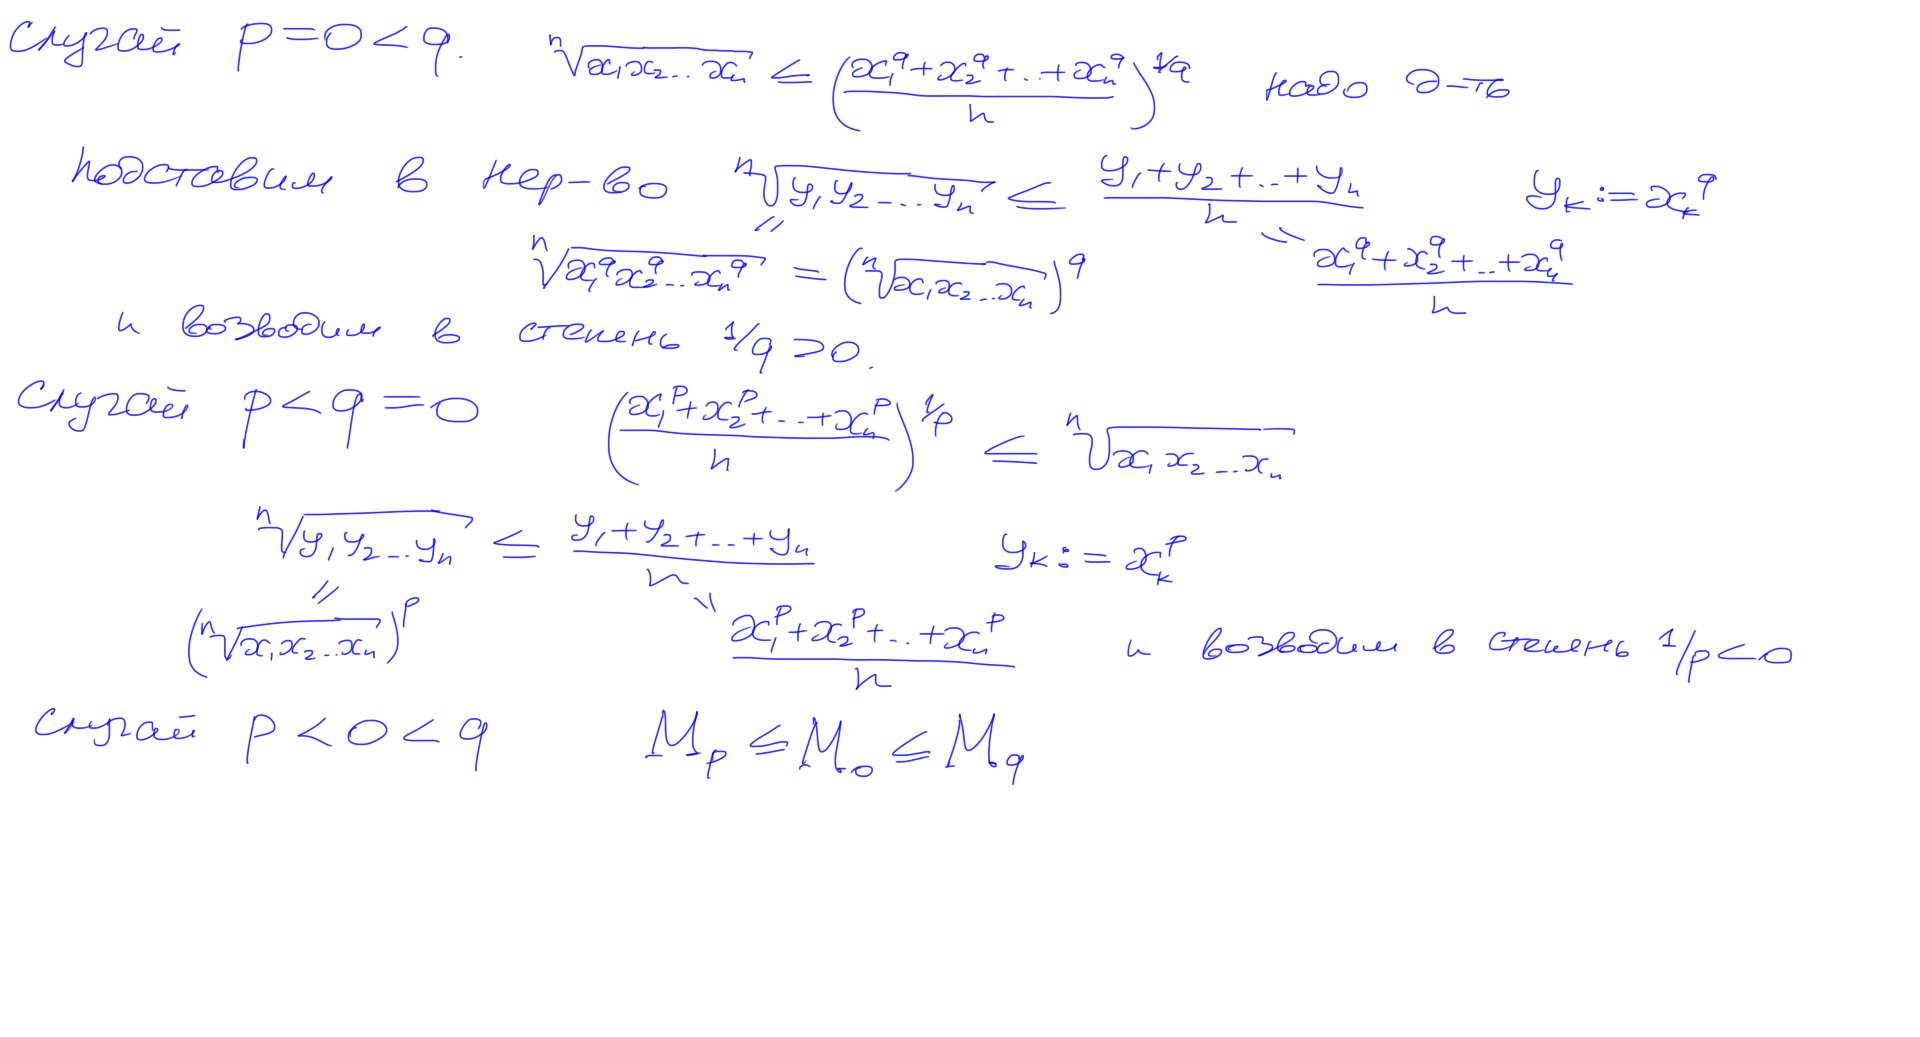 Случай p = 0 < q. \sqrt[n]{x_1 x_2 ... x_n} ≤ \left(\frac{x_1^q + x_2^q + .. + x_n^q}{n}\right)^{1/q} надо д-ть
Подставим в нер-во \sqrt[n]{y_1 y_2 ... y_n} ≤ \frac{y_1 + y_2 + .. + y_n}{n} y_k := x_k^q
= =
\sqrt[n]{x_1^q x_2^q ... x_n^q} = \left(\sqrt[n]{x_1 x_2 ... x_n}\right)^q \frac{x_1^q + x_2^q + .. + x_n^q}{n}
и возводим в степень 1/q > 0.
Случай p < q = 0 \left(\frac{x_1^p + x_2^p + .. + x_n^p}{n}\right)^{1/p} ≤ \sqrt[n]{x_1 x_2 ... x_n}
\sqrt[n]{y_1 y_2 ... y_n} ≤ \frac{y_1 + y_2 + .. + y_n}{n} y_k := x_k^p
= =
\left(\sqrt[n]{x_1 x_2 ... x_n}\right)^p \frac{x_1^p + x_2^p + .. + x_n^p}{n} и возводим в степень 1/p < 0
Случай p < 0 < q M_p ≤ M_0 ≤ M_q